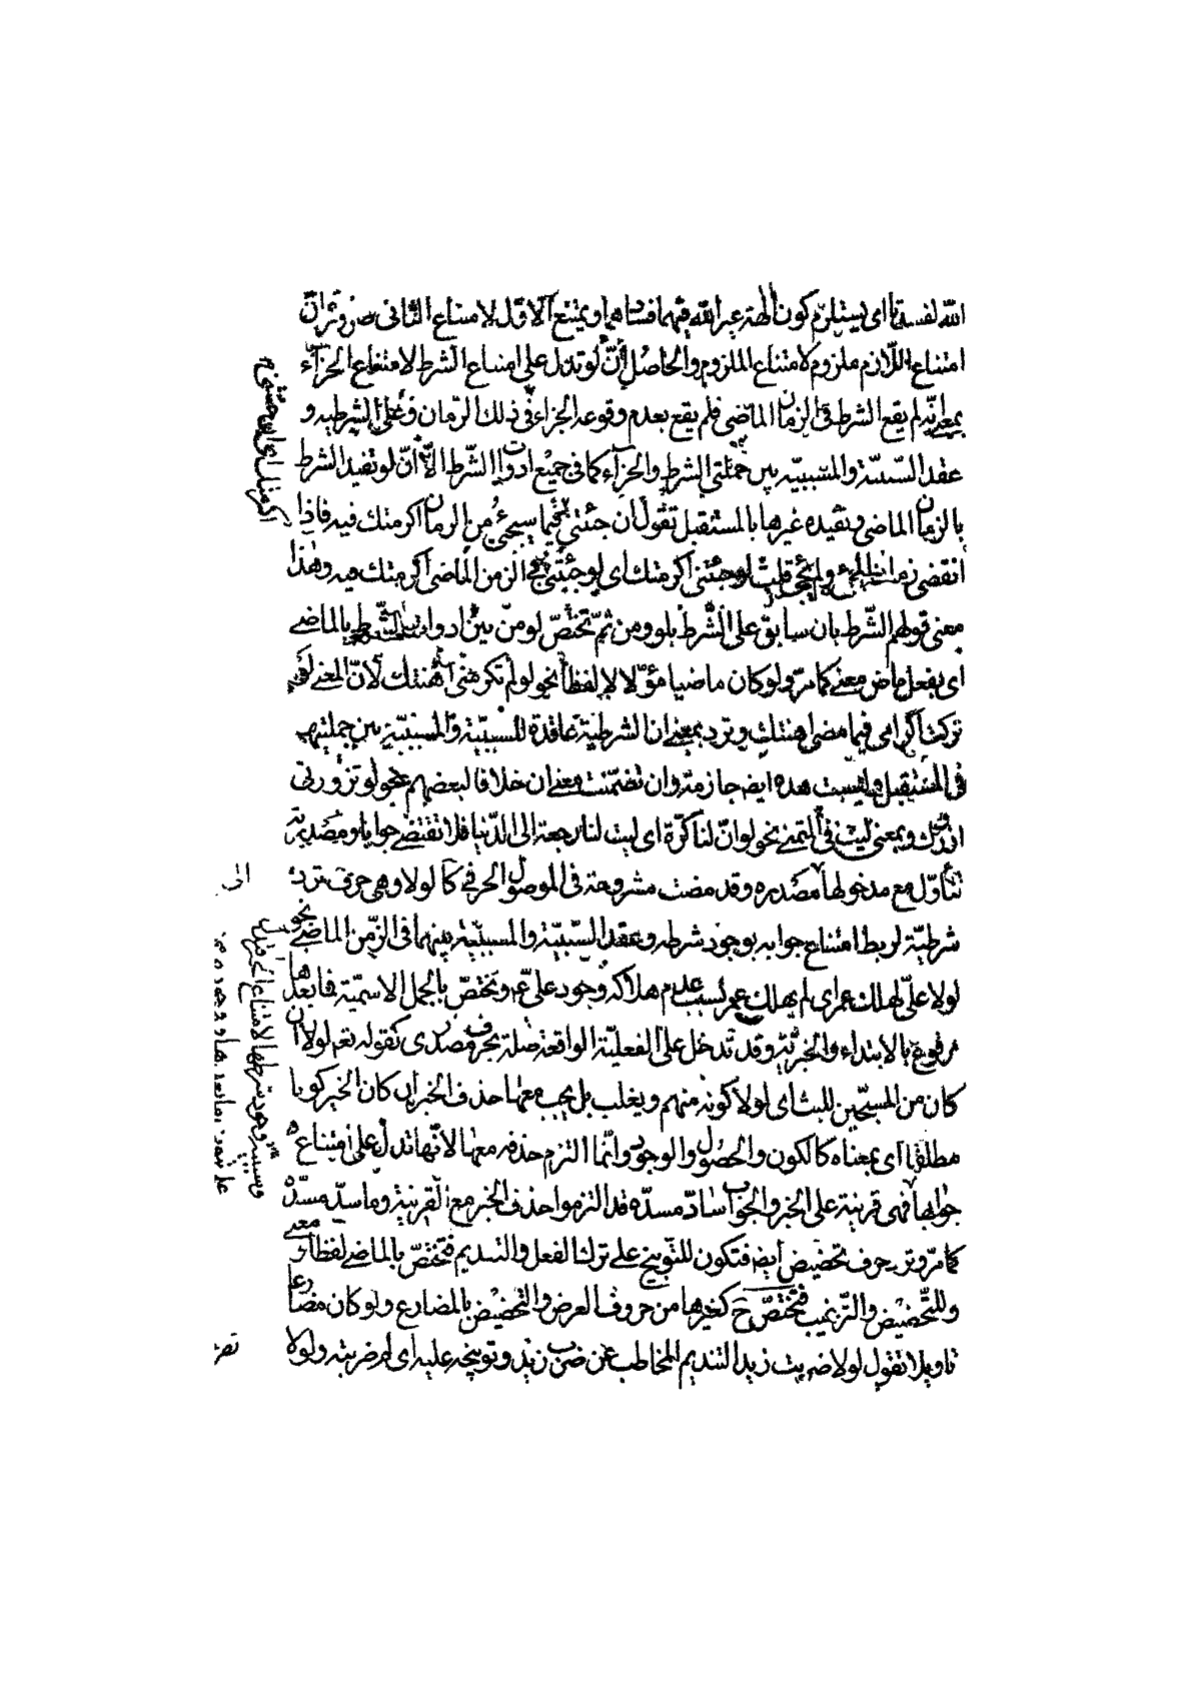 الله لفسدتا اى يستلزم كون الهة غير الله فيهما فسادهما ويمتنع الاول لامتناع الثانى ضرورة ان
امتناع اللازم ملزوم لامتناع الملزوم والحاصل انّ لو تدل على امتناع الشرط لامتناع الجزآء
بمعنى انّه لم يقع الشرط فى الزمان الماضى فلم يقع بعدم وقوعه الجزاء فى ذلك الزمان وعلى الشرطيه و
عقد السّببيّة والمسببيّه بين جملتى الشرط والجزآء كما فى جميع ادوات الشّرط الاّ انّ لو تفيد الشرط
بالزمان الماضى وتقيده غيرها بالمستقبل تقول ان جئتنى فيما سيجئ من الزمان اكرمتك فيه فاذا
انقضى زمان ولم يجئ قلت لو جئتنى اكرمتك اى لو جئتنى فى الزمن الماضى اكرمتك فيه وهذا
معنى قولهم الشّرط بان سابق على الشّرط بلو ومن ثمّ تختصّ لو من بين ادوات الشّرط بالماضى
اى بفعل ماض معنى كما مرّ ولو كان ماضيا مؤوّلا لا لفظا نحو لو لم تكرمنى اهنتك لانّ المعنى لو
تركت اكرامى فيما مضى اهنتك وترد بمعنى ان الشرطيّة عاقدة للسببيّة والمسببيّة بين جملتيها
فى المستقبل وليست هذه ايضا جازمة وان تضمّنت معنى ان خلافا لبعضهم نحو لو تزورنى
ازورك وبمعنى ليت فى التمنّى نحو لو انّ لنا كرّة اى ليت لنا رجعة الى الدّنيا فلا تقتضى جوابا ومصدرية
تتأوّل مع مدخولها بمصدره وقد مضت مشروحة فى الموصول الحرفى كا لولا وهى حرف ترد
شرطيّة لربط امتناع جوابه بوجود شرطه وعقد السّببيّة والمسببيّة بينهما فى الزّمن الماضى نحو
لولا علىّ لهلك عمر اى لم يهلك عمر لسبب عدم هلاكه وجود علىّ ع م وتختصّ بالجمل الاسميّة فما بعدها
مرفوع بالابتداء والخبريّة وقد تدخل على الفعليّة الواقعة صلة بحرف مصدرى كقوله تعم لولا ان
كان من المسبّحين للبث اى لولا كونه منهم ويغلب بل يجب معها حذف الخبر ان كان الخبر كونا
مطلقا اى بمعناه كالكون والحصول والوجود وانّما التزم حذفه معها لانّها تدلّ على امتناع
جوابها فهى قرينة على الخبر والجواب سادّ مسدّه قد التزموا حذف الخبر مع القرينة وما سدّ مسدّه
كما مرّ وترد حرف تحضيض ايضا فتكون للتوبيخ على ترك الفعل والتنديم فتختصّ بالماضى لفظا و معنى
وللتّحضيض والتّرغيب فتختصّ ح كغيرها من حروف العرض والتحضيض بالمضارع ولو كان مضارعا
تاويلا تقول لولا ضربت زيدا لتنديم المخاطب عن ضرب زيد وتوبيخه عليه اى لم ضربته ولولا